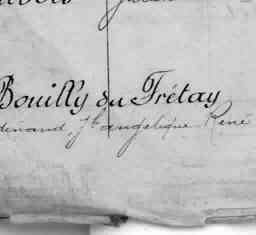 Bouilly du Frétay
dinand, Jh angélique René